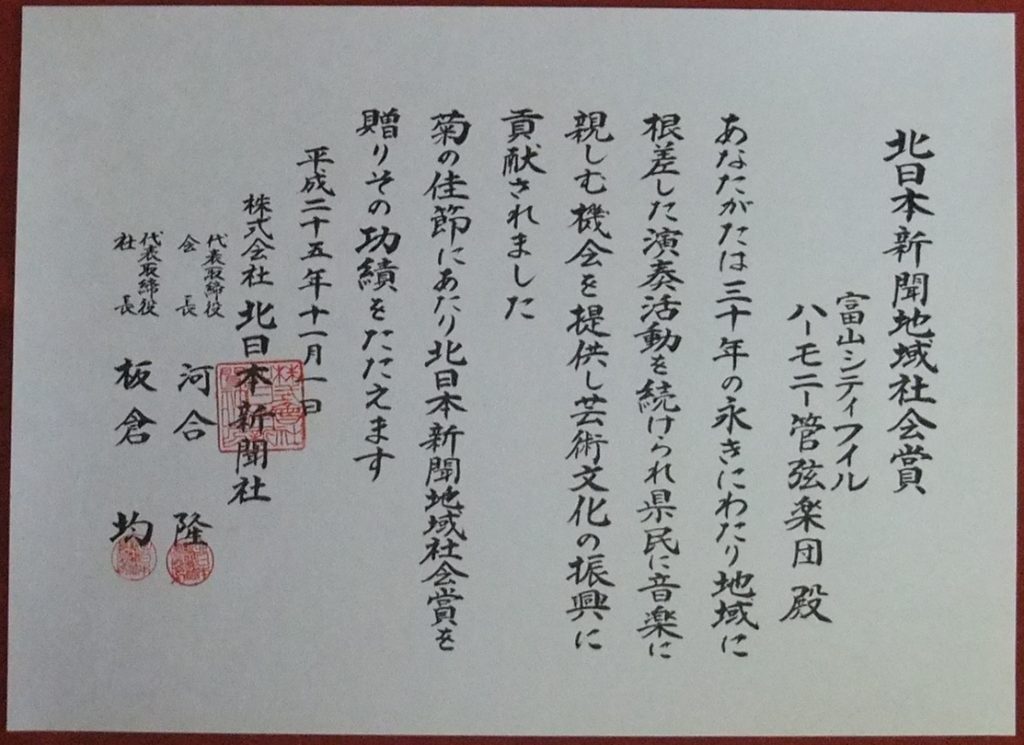 北日本新聞地域社会賞
富山シティフイル
ハーモニー管弦楽団 殿
あなたがたは三十年の永きにわたり地域に
根差した演奏活動を続けられ県民に音楽に
親しむ機会を提供し芸術文化の振興に
貢献されました
菊の佳節にあたり北日本新聞地域社会賞を
贈りその功績をたたえます
平成二十五年十一月一日
株式会社 北日本新聞社
代表取締役
会長 河合 隆
代表取締役
社長 板倉 均